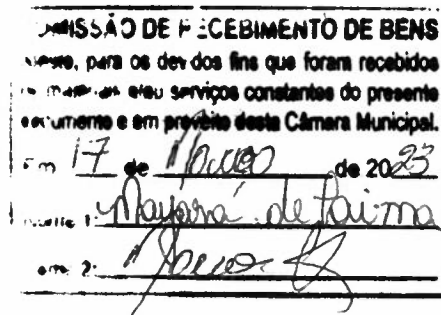 COMISSÃO DE RECEBIMENTO DE BENS
para os devidos fins que foram recebidos
os materiais e/ou serviços constantes do presente
documento e em proveito desta Câmara Municipal.
Em 17 de Março de 2023
1: Mayara de
2: